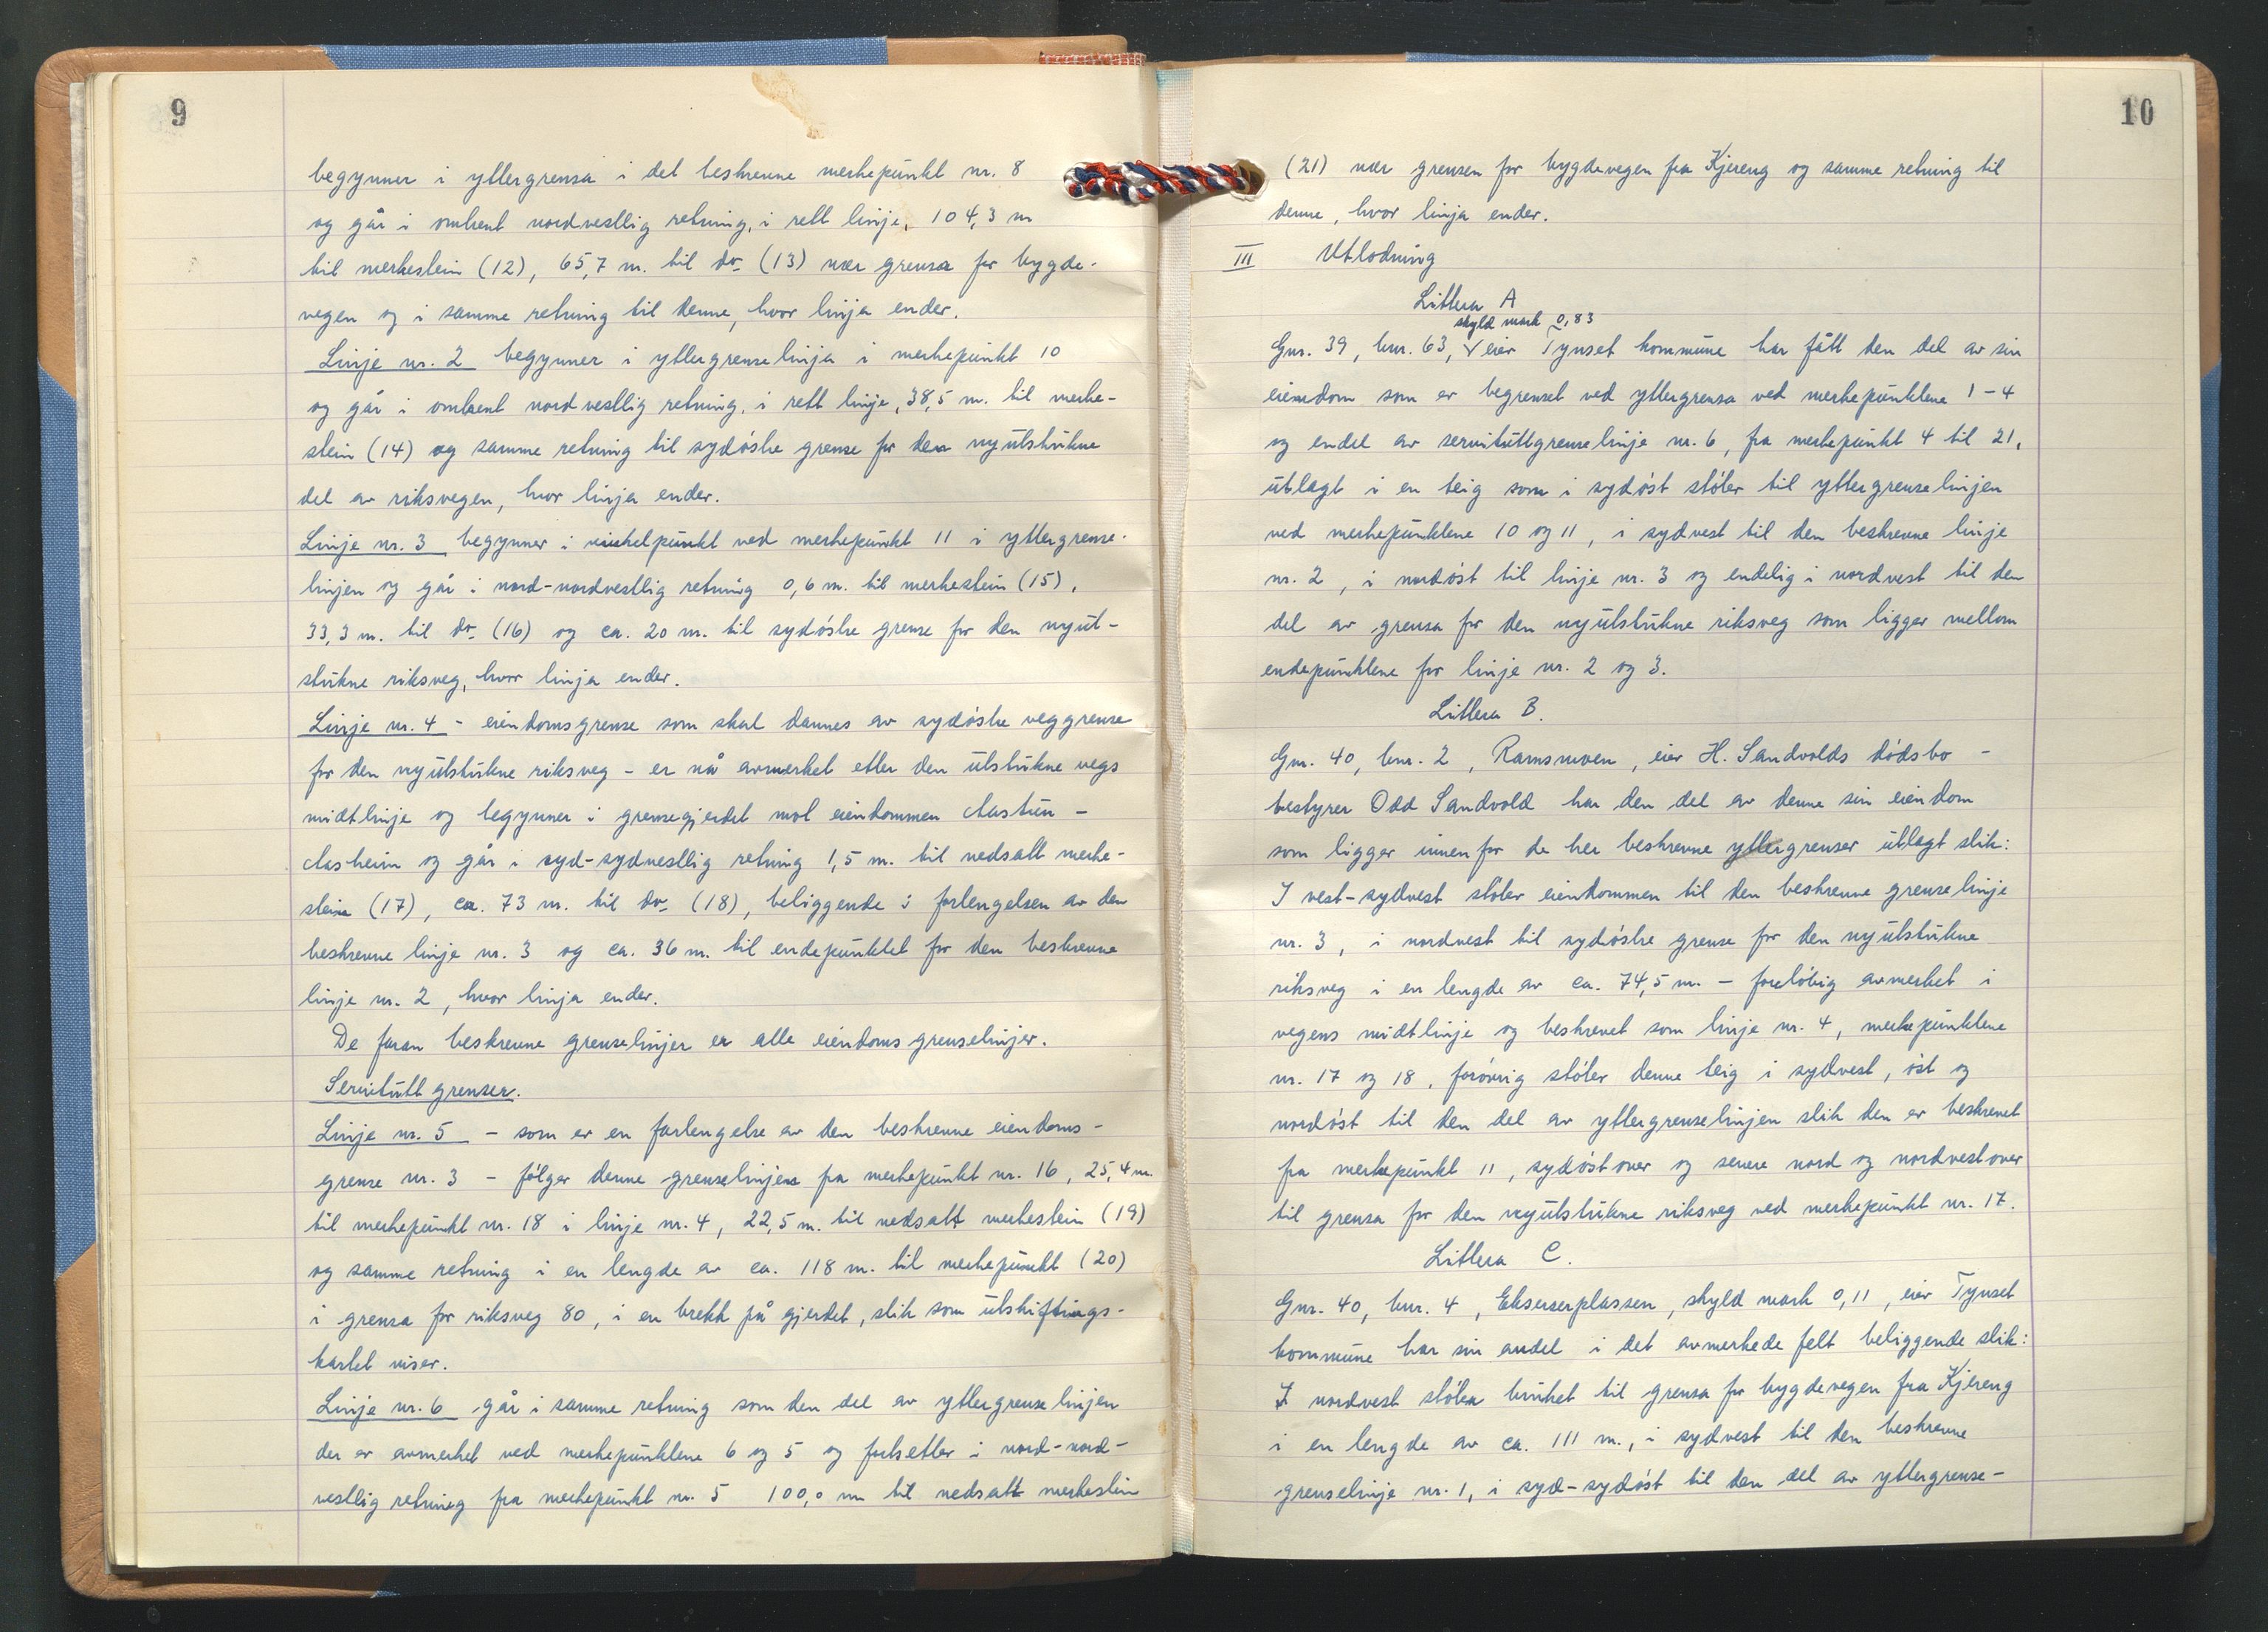 9
begynner i yttergrensa i det beskrevne merkepunkt nr. 8
og går i omtrent nordvestlig retning, i rett linje, 104,3 m
til merkestein (12), 65,7 m. til do (13) nær grensa for bygde-
vegen og i samme retning til denne, hvor linja ender.
Linje nr. 2 begynner i yttergrenselinja i merkepunkt 10
og går i omtrent nordvestlig retning, i rett linje, 38,5 m. til merke-
stein (14) og samme retning til sydøstre grense for den nyutstukne
del av riksvegen, hvor linja ender.
Linje nr. 3 begynner i vinkelpunkt ved merkepunkt 11 i yttergrense-
linjen og går i nord-nordvestlig retning 0,6 m. til merkestein (15),
33,3 m. til do (16) og ca. 20 m. til sydøstre grense for den nyut-
stukne riksveg, hvor linja ender.
Linje nr. 4 - eiendomsgrense som skal dannes av sydøstre veggrense
for den nyutstukne riksveg - er nå avmerket etter den utstukne vegs
midtlinje og begynner i grensegjerdet mot eiendommen Aastun -
Aasheim og går i syd-sydvestlig retning 1,5 m. til nedsatt merke-
stein (17), ca. 73 m. til do (18), beliggende i forlengelsen av den
beskrevne linje nr. 3 og ca. 36 m. til endepunktet for den beskrevne
linje nr. 2, hvor linja ender.
De foran beskrevne grenselinjer er alle eiendomsgrenselinjer.
Servituttgrenser.
Linje nr. 5 - som er en forlengelse av den beskrevne eiendoms-
grense nr. 3 - følger denne grenselinjen fra merkepunkt nr. 16, 25,4 m.
til merkepunkt nr. 18 i linje nr. 4, 22,5 m. til nedsatt merkestein (19)
og samme retning i en lengde av ca. 118 m. til merkepunkt (20)
i grensa for riksveg 80, i en brekk på gjerdet, slik som utskiftings-
kartet viser.
Linje nr. 6 går i samme retning som den del av yttergrenselinjen
der er avmerket ved merkepunktene 6 og 5 og fortsetter i nord-nord-
vestlig retning fra merkepunkt nr. 5 100,0 m til nedsatt merkestein
10
(21) nær grensen for bygdevegen fra Kjereng og samme retning til
denne, hvor linja ender.
III Utlodning
Littera A
skyld mark 0,83
Gnr. 39, bnr. 63, eier Tynset kommune har fått den del av sin
eiendom som er begrenset ved yttergrensa ved merkepunktene 1-4
og endel av servituttgrenselinje nr. 6, fra merkepunkt 4 til 21,
utlagt i en teig som i sydøst støter til yttergrenselinjen
ved merkepunktene 10 og 11, i sydvest til den beskrevne linje
nr. 2, i nordøst til linje nr. 3 og endelig i nordvest til den
del av grensa for den nyutstukne riksveg som ligger mellom
endepunktene for linje nr. 2 og 3.
Littera B.
Gnr. 40, bnr. 2, Ramsmoen, eier H. Sandvolds dødsbo -
bestyrer Odd Sandvold har den del av denne sin eiendom
som ligger innenfor de her beskrevne yttergrenser utlagt slik:
I vest-sydvest støter eiendommen til den beskrevne grenselinje
nr. 3, i nordvest til sydøstre grense for den nyutstukne
riksveg i en lengde av ca. 74,5 m. - foreløbig avmerket i
vegens midtlinje og beskrevet som linje nr. 4, merkepunktene
nr. 17 og 18, forøvrig støter denne teig i sydvest, øst og
nordøst til den del av yttergrenselinjen slik den er beskrevet
fra merkepunkt 11, sydøstover og senere nord og nordvestover
til grensa for den nyutstukne riksveg ved merkepunkt nr. 17.
Littera C.
Gnr. 40, bnr. 4, Ekserserplassen, skyld mark 0,11, eier Tynset
kommune har sin andel i det avmerkede felt beliggende slik:
I nordvest støter bruket til grensa for bygdevegen fra Kjereng
i en lengde av ca. 111 m., i sydvest til den beskrevne
grenselinje nr. 1, i syd-sydøst til den del av yttergrense-